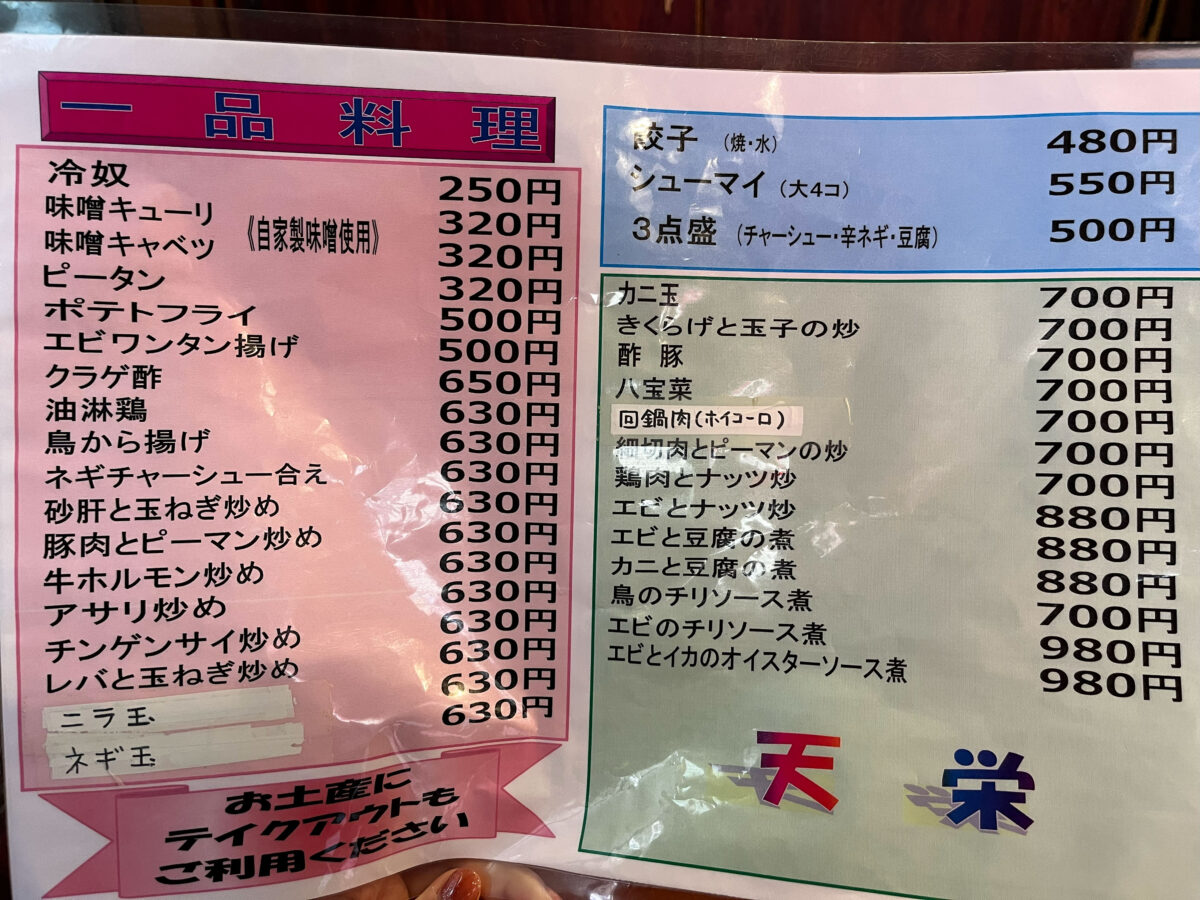 一品料理
冷奴 250円
味噌キューリ 320円
《自家製味噌使用》
味噌キャベツ 320円
ピータン 320円
ポテトフライ 500円
エビワンタン揚げ 500円
クラゲ酢 650円
油淋鶏 630円
鳥から揚げ 630円
ネギチャーシュー合え 630円
砂肝と玉ねぎ炒め 630円
豚肉とピーマン炒め 630円
牛ホルモン炒め 630円
アサリ炒め 630円
チンゲンサイ炒め 630円
レバと玉ねぎ炒め 630円
ニラ玉 630円
ネギ玉 630円
お土産に
テイクアウトも
ご利用ください
餃子 (焼・水) 480円
シューマイ (大4コ) 550円
3点盛 (チャーシュー・辛ネギ・豆腐) 500円
カニ玉 700円
きくらげと玉子の炒 700円
酢豚 700円
八宝菜 700円
回鍋肉(ホイコーロ) 700円
細切肉とピーマンの炒 700円
鶏肉とナッツ炒 700円
エビとナッツ炒 880円
エビと豆腐の煮 880円
カニと豆腐の煮 880円
鳥のチリソース煮 700円
エビのチリソース煮 980円
エビとイカのオイスターソース煮 980円
天栄